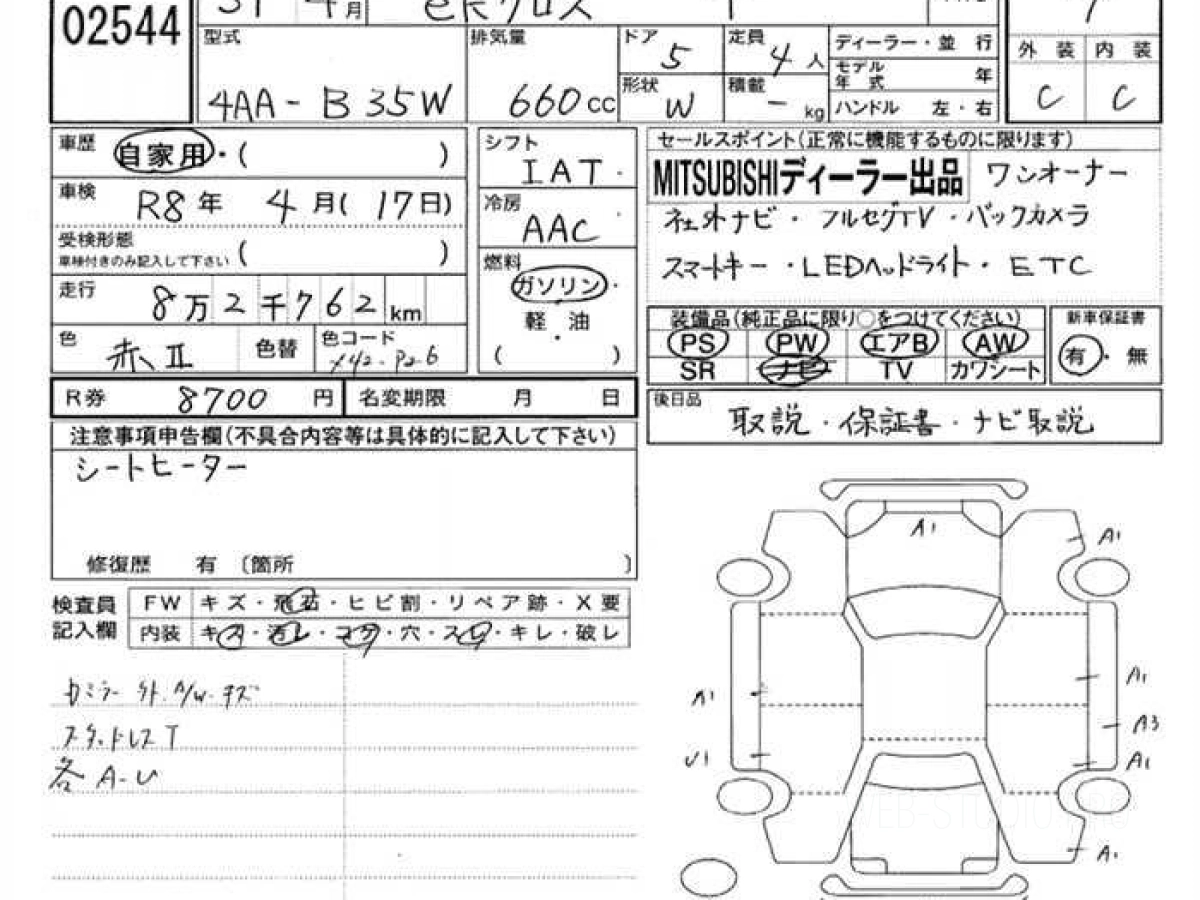 02544
31 4月 eKクロス
型式 排気量 ドア 5 定員 4人 ディーラー・並 行
4AA-B35W 660cc 形状 W 積載 - kg モデル年式 年
ハンドル 左・右
外 装 内 装
C C
車歴 自家用・( )
車検 R8年 4月(17日)
受検形態
車検付きのみ記入して下さい ( )
走行 8万2千762km
色 赤II 色替 色コード
シフト IAT
冷房 AAC
燃料 ガソリン・
軽・油
( )
セールスポイント(正常に機能するものに限ります)
MITSUBISHIディーラー出品 ワンオーナー
社外ナビ・フルセグTV・バックカメラ
スマートキー・LEDヘッドライト・ETC
装備品(純正品に限り○をつけてください)
PS PW エアB AW
SR ナビ TV カワシート
新車保証書
有・無
R券 8700円 名変期限 月 日
後日品 取説・保証書・ナビ取説
注意事項申告欄(不具合内容等は具体的に記入して下さい)
シートヒーター
修復歴 有 〔箇所 〕
検査員記入欄
FW キズ・飛石・ヒビ割・リペア跡・X要
内装 キズ・汚レ・コゲ・穴・スレ・キレ・破レ
カミラー外 A/W キズ
スタッドレスT
各A-U
A1
A1
A1
A1
A3
U1
A1
A1